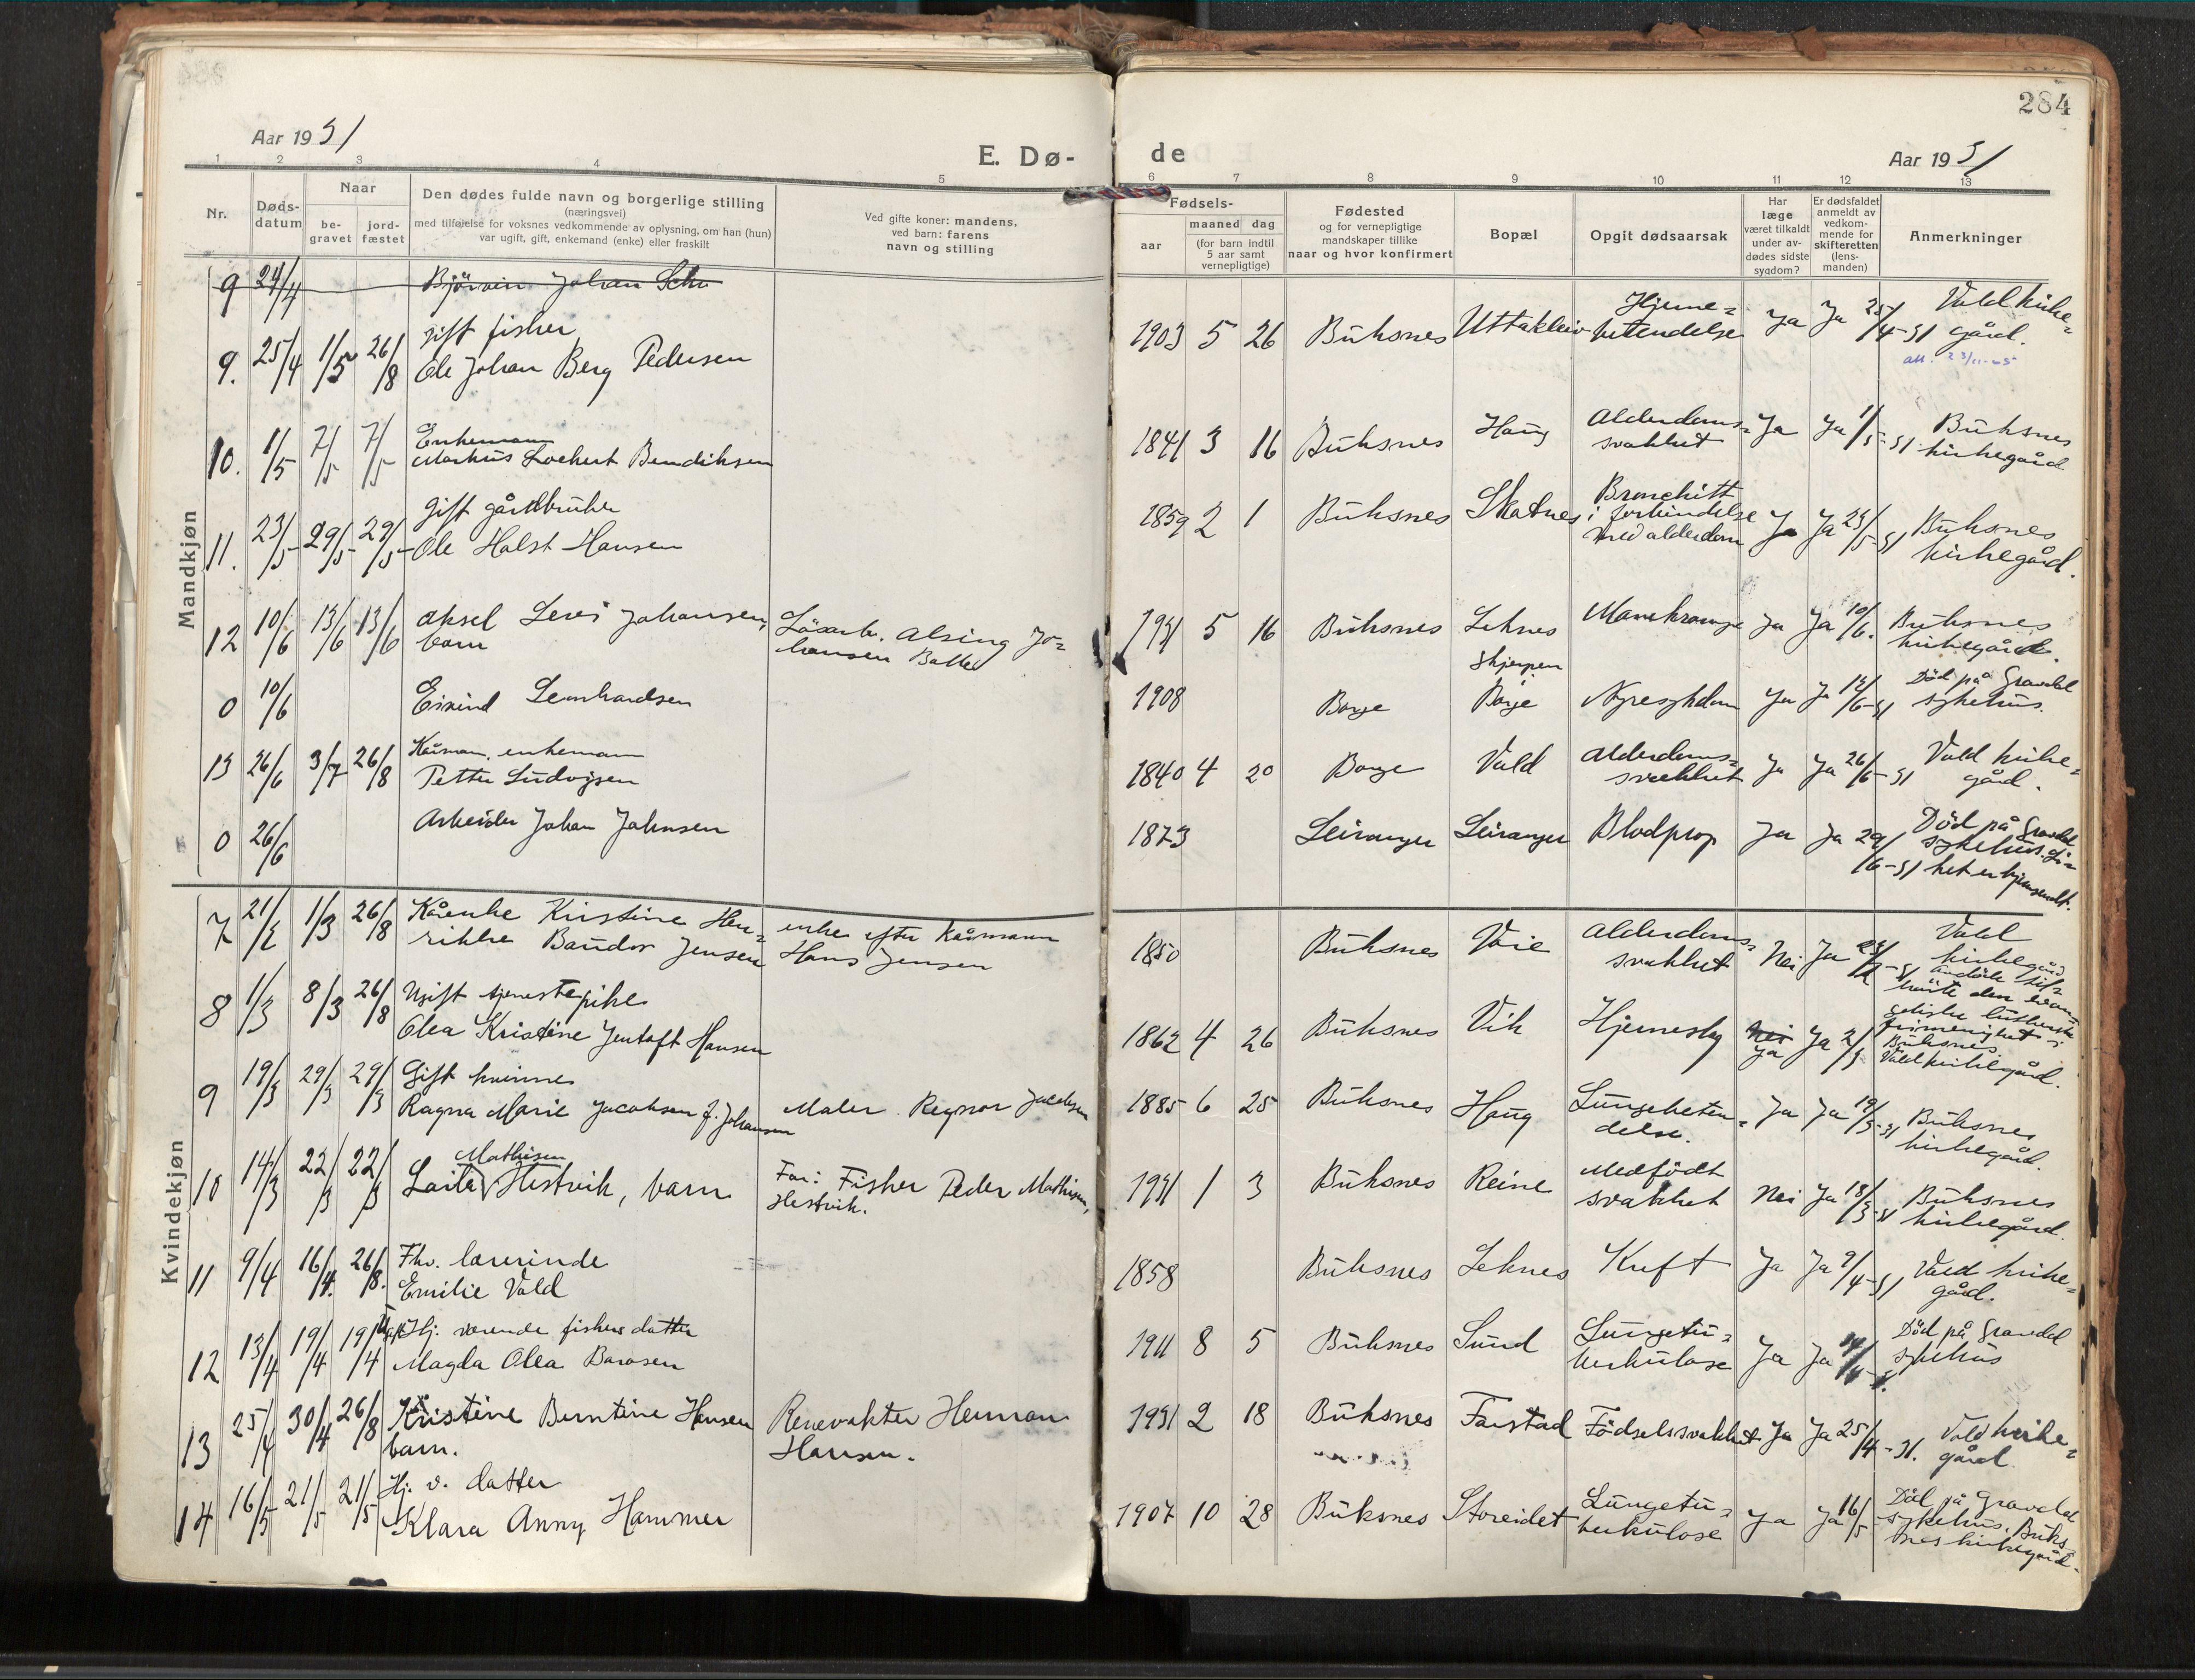 284
Aar 1931
E. Dø-
de
Aar 1931
1 2 3 4 5 6 7 8 9 10 11 12 13
Nr.
Døds-
datum
Naar
be-
gravet
jord-
fæstet
Den dødes fulde navn og borgerlige stilling
(næringsvei)
med tilføielse for voksnes vedkommende av oplysning, om han (hun)
var ugift, gift, enkemand (enke) eller fraskilt
Ved gifte koner: mandens,
ved barn: farens
navn og stilling
Fødsels-
aar
maaned dag
(for barn indtil
5 aar samt
vernepligtige)
Fødested
og for vernepligtige
mandskaper tillike
naar og hvor konfirmert
Bopæl
Opgit dødsaarsak
Har
læge
været tilkaldt
under av-
dødes sidste
sygdom?
Er dødsfaldet
anmeldt av
vedkom-
mende for
skifteretten
(lens-
manden)
Anmerkninger
Mandkjøn
9 24/4 Johan
9. 25/4 1/5 26/8 gift fisker
Ole Johan Berg Pedersen
1903 5 26 Buksnes Uttakleiv Hjerne-
betendelse Ja Ja 25/4-31 Vald kirke-
gård.
10. 1/5 7/5 7/5 Enkemann
Markus Lockert Bendiksen
1841 3 16 Buksnes Haug Alderdoms-
svakhet Ja Ja 1/5-31 Buksnes
kirkegård
11. 23/5 29/5 29/5 Gift gårdbruker
Ole Holst Hansen
1859 2 1 Buksnes Skatnes Bronchitt
i forbindelse
med alderdom Ja Ja 23/5-31 Buksnes
kirkegård.
12 10/6 13/6 13/6 Aksel Levi Johansen,
barn
Løsarb. Alsing Jo-
hansen Balle
1931 5 16 Buksnes Leknes Mavekrampe Ja Ja 10/6. Buksnes
kirkegård.
0 10/6 Eivind Leonhardsen
1908 Borge Skjerpen
Borge Nyresykdom Ja Ja 12/6-31 Død på Gravdal
sykehus.
13 26/6 3/7 26/8 Kårmann, enkemann
Petter Ludvigsen
1840 4 20 Borge Vald Alderdoms-
svakhet Ja Ja 26/6-31 Vald kirke-
gård.
0 26/6 Arbeider Johan Johnsen
1873 Leiranger Leiranger Blodprop Ja Ja 29/6-31 Død på Gravdal
sykehus. Li-
ket er hjemsendt.
Kvindekjøn
7 21/2 1/3 26/8 Kårenke Kristine Hen-
rikke Baudor Jensen
enke efter kårmann
Hans Jensen
1850 Buksnes Voie Alderdoms-
svakhet Nei Ja Vald
kirkegård
8 1/3 8/3 26/8 Ugift tjenestepike
Olea Kristine Jentoft Hansen
1862 4 26 Buksnes Vik Hjerneslag Nei
Ja Ja 2/3 Avdøde til-
hørte den evan-
geliske lutherske
frimenighet i
Buksnes.
Vald kirkegård.
9 19/3 29/3 29/3 Gift kvinne
Ragna Marie Jacobsen f. Johansen
Maler Regnor Jacobsen
1885 6 25 Buksnes Haug Lungebeten-
delse. Ja Ja 19/3-31 Buksnes
kirkegård.
10 14/3 22/3 22/3 Mathisen
Laila Hestvik, barn
Far: Fisker Peder Mathisen,
Hestvik.
1931 1 3 Buksnes Reine Medfødt
svakhet Nei Ja 18/3-31 Buksnes
kirkegård.
11 9/4 16/4. 26/8. Fhv. lærerinde
Emilie Vald
1858 Buksnes Leknes Kreft Ja Ja 9/4-31 Vald kirke-
gård.
12 13/4 19/4 19/4 Ugift Hj. værende fiskers datter
Magda Olea Barosen
1911 8 5 Buksnes Sund Lungetu-
berkulose Ja Ja Død på Gravdal
sykehus
13 25/4 30/4 26/8 Kristine Berntine Hansen
barn.
Renovatør Herman
Hansen.
1931 2 18 Buksnes Farstad Fødselssvakhet Ja Ja 25/4-31. Vald kirke-
gård
14 16/5 21/5 21/5 Hj. v. datter
Klara Anny Hammer
1907 10 28 Buksnes Storeidet Lungetu-
berkulose Ja Ja 16/5 Død på Gravdal
sykehus. Buks-
nes kirkegård.